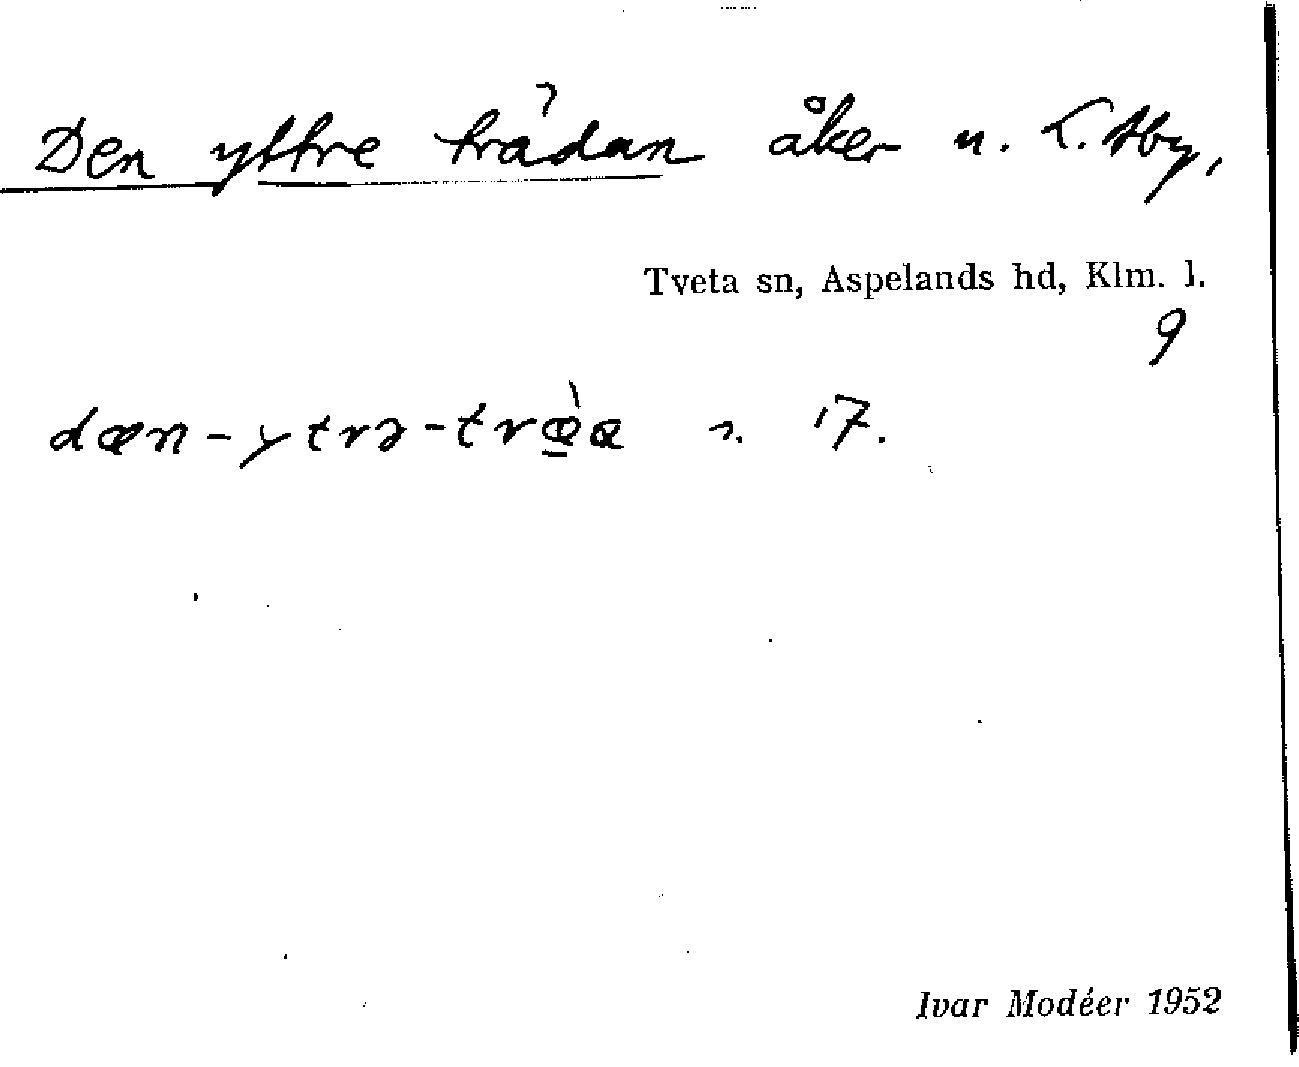 Den yttre trädan åker n. L. Aby,
Tveta sn, Aspelands hd, Klm. l.
9
dæn-ytrə-træ̀æ s. 17.
Ivar Modéer 1952